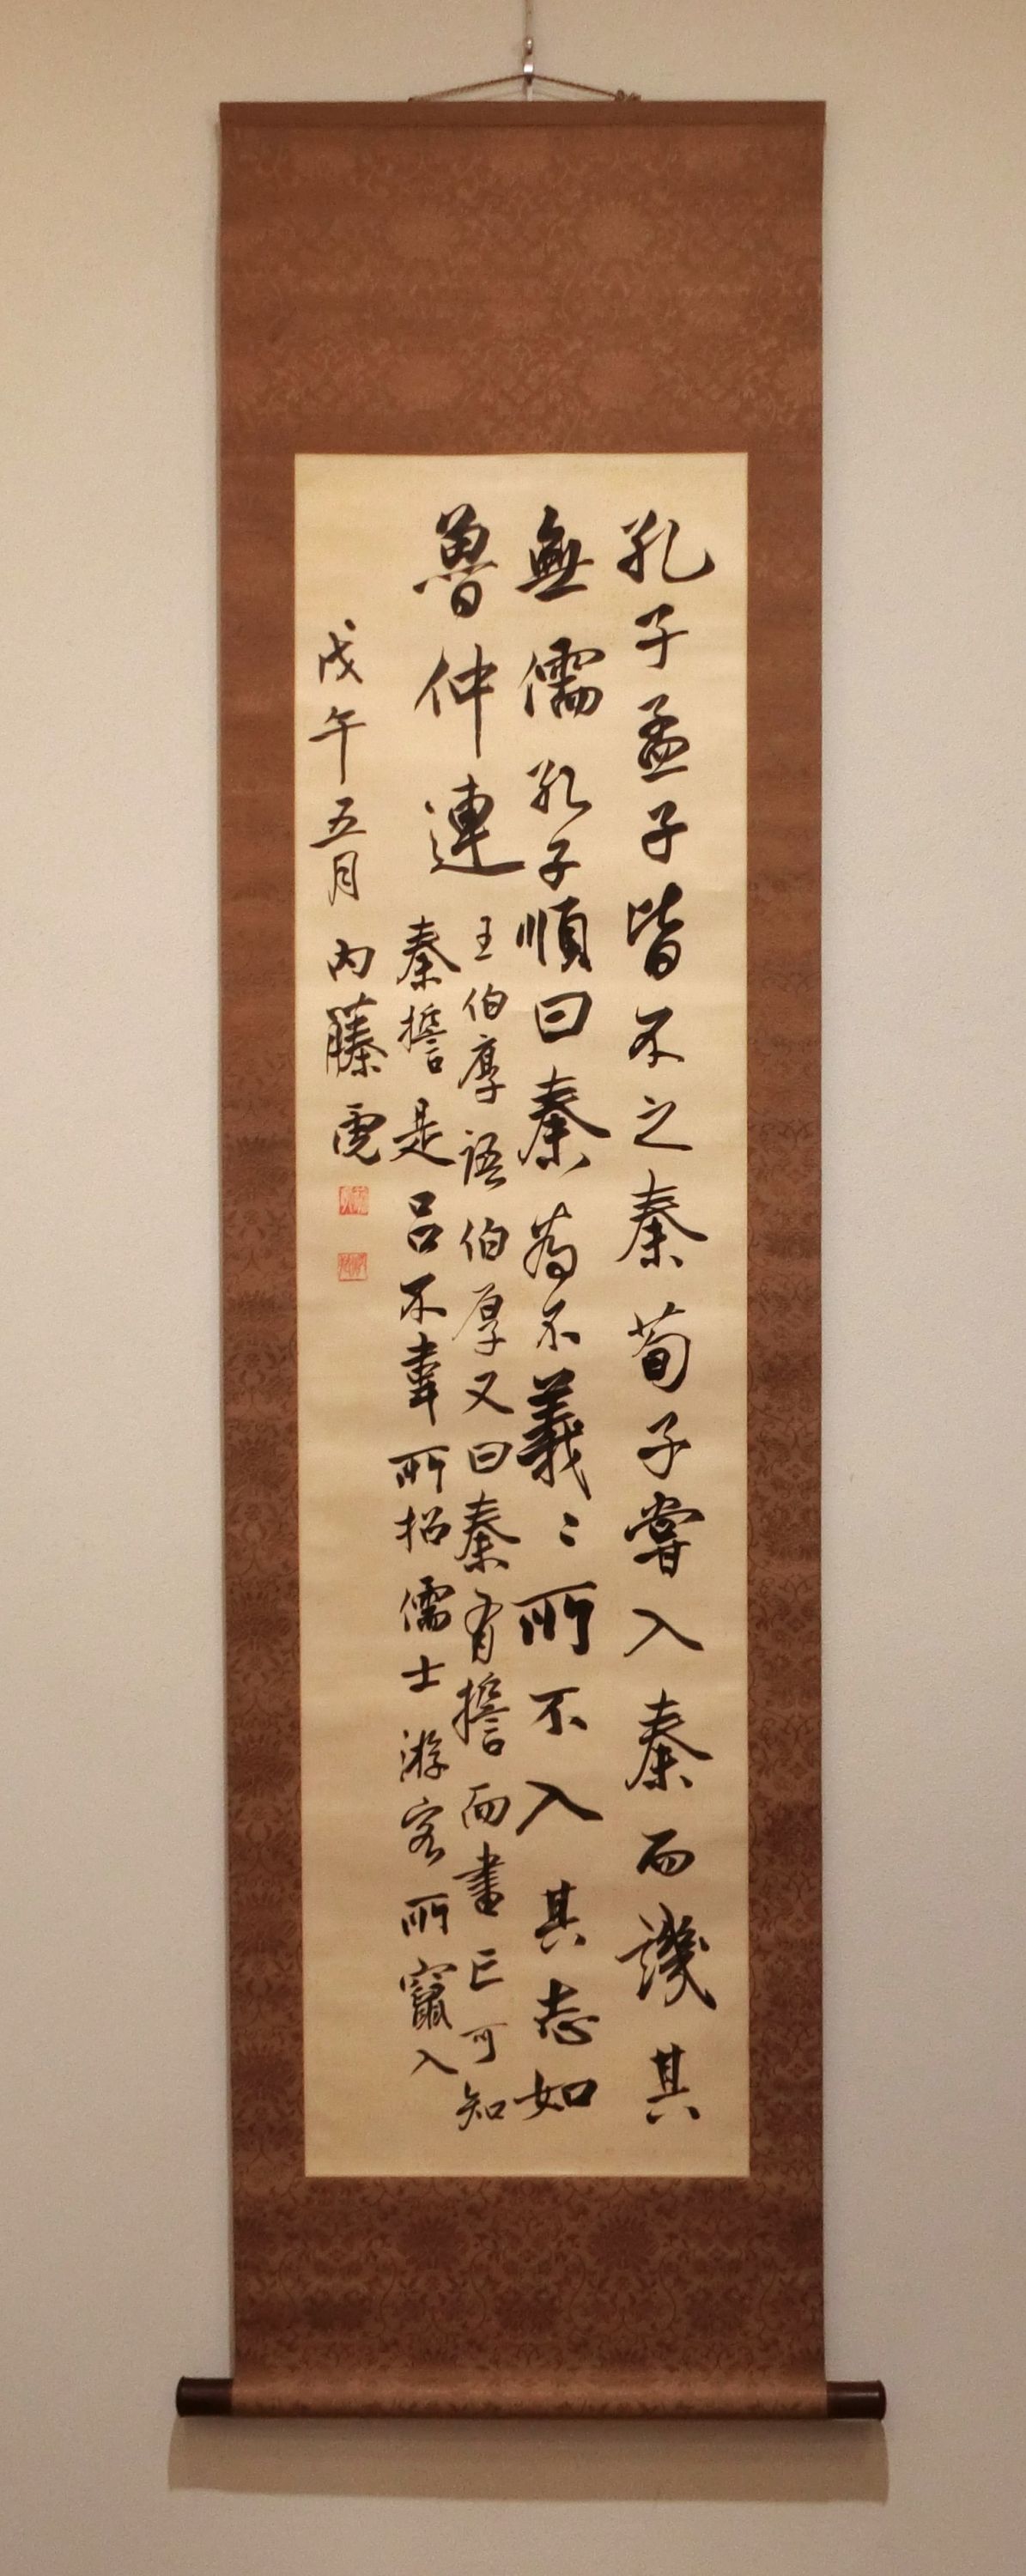 孔子孟子皆不之秦荀子嘗入秦而譏其
無儒孔子順曰秦為不義〻所不入其志如
魯仲連
王伯厚語伯厚又曰秦有誓而書亡可知
秦誓是呂不韋所招儒士游客所竄入
戊午五月 内藤虎